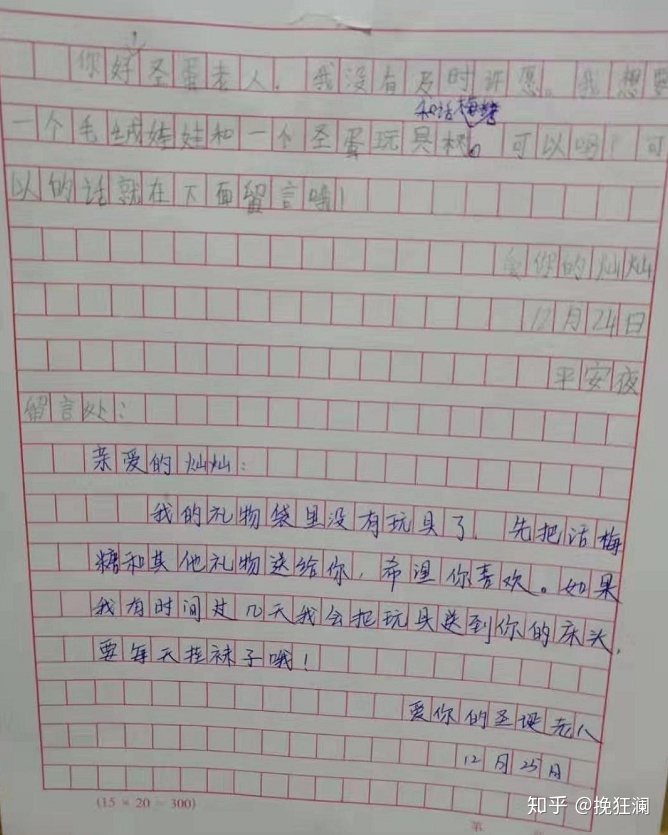 你好圣蛋老人，我没有及时许愿。我想要
和话梅糖
一个毛绒娃娃和一个圣蛋玩具树。可以吗？可
以的话就在下面留言哦！
爱你的灿灿
12月24日
平安夜
留言处：
亲爱的灿灿：
我的礼物袋里没有玩具了，先把话梅
糖和其他礼物送给你，希望你喜欢。如果
我有时间过几天我会把玩具送到你的床头，
要每天挂袜子哦！
爱你的圣诞老人
12月25日
(15×20=300)
第
知乎 @挽狂澜